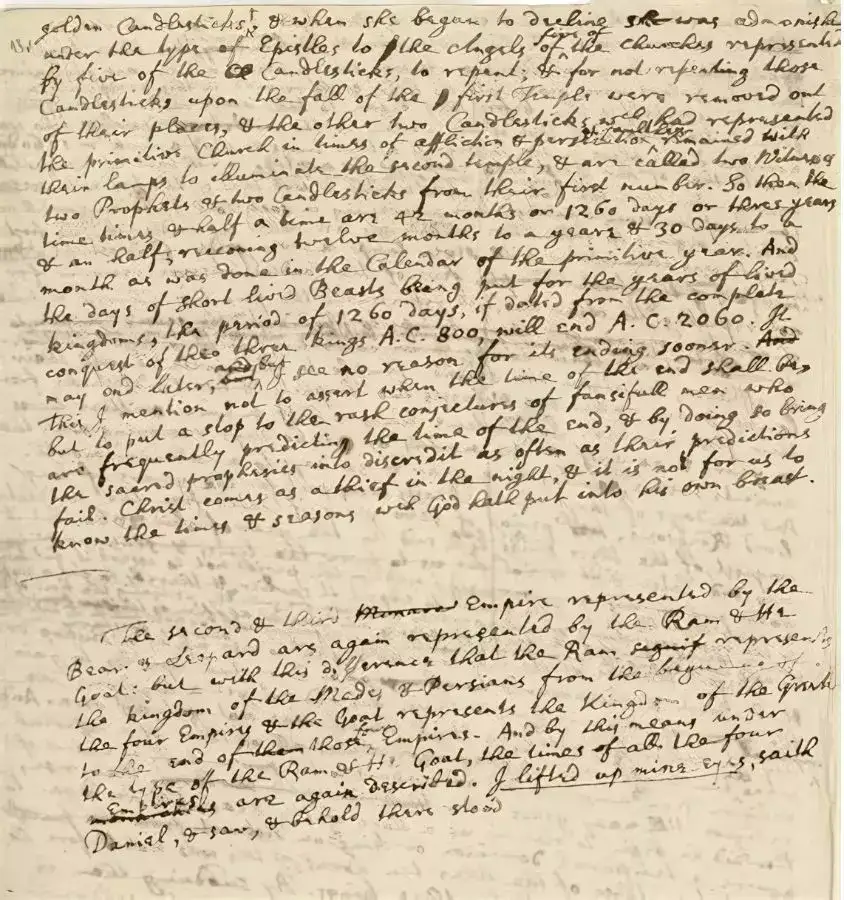 golden Candlesticks, & when she began to decline she was admonished
under the type of Epistles to the Angels of five of the Churches represented
by five of the Candlesticks, to repent; & for not repenting those
Candlesticks upon the fall of the first Temple were removed out
of their places, & the other two Candlesticks wch had represented
the primitive Church in times of affliction & persecution remained with
their lamps to illuminate the second temple, & are called two Witnesses
two Prophets & two Candlesticks from their first number. So then the
time times & half a time are 42 months or 1260 days or three years
& an half, reconing twelve months to a yeare & 30 days to a
month as was done in the Calendar of the primitive year. And
the days of short lived Beasts being put for the years of lived
kingdoms, the period of 1260 days, if dated from the complete
conquest of the three kings A.C. 800, will end A.C. 2060. It
may end later, but I see no reason for its ending sooner. And
This I mention not to assert when the time of the end shall be,
but to put a stop to the rash conjectures of fansifull men who
are frequently predicting the time of the end, & by doing so bring
the sacred prophesies into discredit as often as their predictions
fail. Christ comes as a thief in the night, & it is not for us to
know the times & seasons wch God hath put into his own breast.
The second & third Empire represented by the
Bear & Leopard are again represented by the Ram & He
Goat: but with this difference that the Ram signif represents
the kingdom of the Medes & Persians from the beginning of
the four Empires & the Goat represents the Kingdom of the Greeks
to the end of them those four Empires. And by this means under
the type of the Ram & He Goat, the times of all the four
Empires are again described. I lifted up mine eyes, saith
Daniel, & saw, & behold there stood